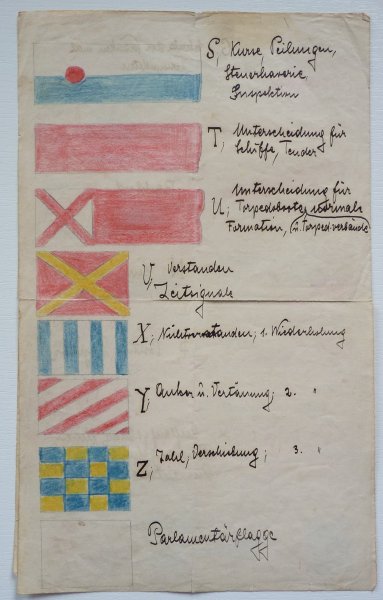 S, Kurse, Peilungen,
Steuerhaverie,
Inspektion
T, Unterscheidung für
Schiffe, Tender
Unterscheidung für
U, Torpedoboote, normale
Formation, (u. Torped.-verbände)
V, Verstanden
Zeitsignale
X, Nichtverstanden, 1. Wiederholung
Y, Anker u. Vertäuung, 2. "
Z, Zahl, Verschiebung, 3. "
Parlamentärflagge